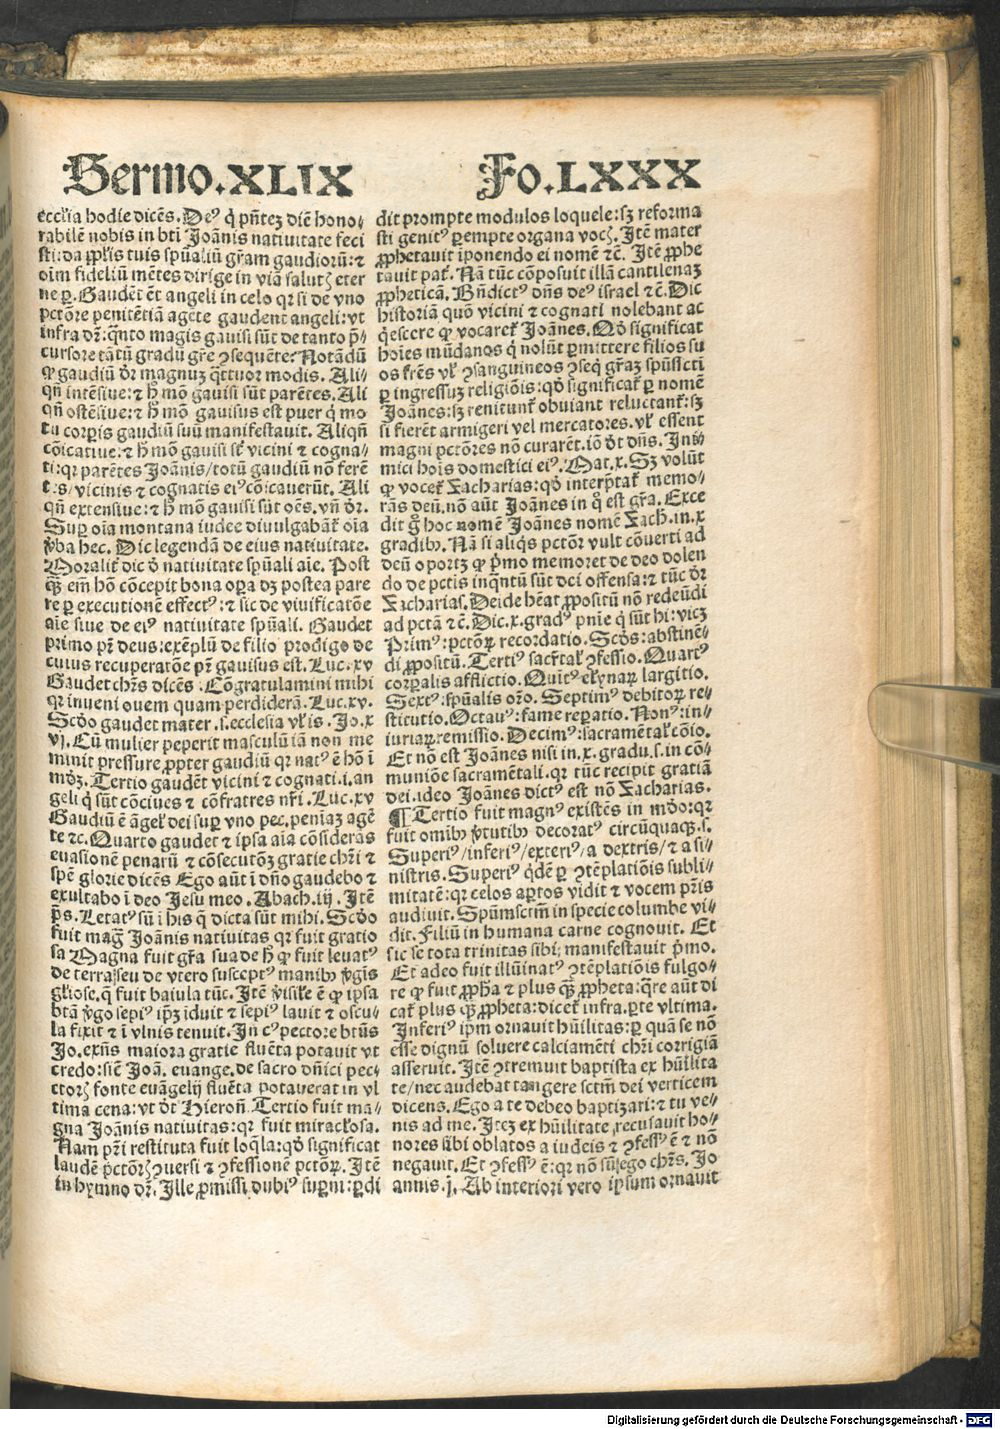 Sermo.XLIX Fo.LXXX
eccl'ia hodie dicẽs. Deꝰ q̇ pñtez diẽ hono-
rabilẽ nobis in bti Joãnis nativitate feci
sti: da ppl'is tuis spũaliũ gr̃am gaudiorũ: ⁊
oĩm fideliũ mẽtes dirige in viã salutꝭ eter
ne ꝑ. Gaudẽt ẽt angeli in celo qꝛ si de vno
pctõre penitẽtiã agẽte gaudent angeli: vt
infra dr̃: q̃nto magis gavisi sũt de tanto p̃-
cursore tãtũ gradũ gr̃e ꝯsequẽte? Notãdũ
ꝙ gaudiũ dr̃ magnuz q̃ttuor modis. Ali-
qñ intẽsive: ⁊ h̥ mõ gavisi sũt parẽtes. Ali
qñ ostẽsive: ⁊ h̥ mõ gavisus est puer q̇ mo
tu corꝑis gaudiũ suũ manifestavit. Aliqñ
cõicative: ⁊ h̥ mõ gavisi sũt vicini ⁊ cogna-
ti: qꝛ parẽtes Joãnis/ totũ gaudiũ nõ ferẽ
tes/ vicinis ⁊ cognatis eiꝰ cõicaverũt. Ali
qñ extensive: ⁊ h̥ mõ gavisi sũt oẽs. vñ dr̃.
Suꝑ oĩa montana iudee divulgabãt᷑ oĩa
v̇ba hec. Dic legendã de eius nativitate.
Moralit᷑ dic ð nativitate spũali aĩe. Post
q̃ꝫ em̃ hõ cõcepit bona oꝑa dꝫ postea pare
re ꝑ executionẽ effectꝰ: ⁊ sic de vivificatõe
aĩe sive de eiꝰ nativitate spũali. Gaudet
primo pr̃ deus: exẽplũ de filio prodigo de
cuius recuperatõe pr̃ gavisus est. Luc. xv
Gaudet chr̃s dicẽs. Cõgratulamini mihi
qꝛ inveni ovem quam perdiderã. Luc. xv.
Scðo gaudet mater .s. ecclesia vl'is. Jo. x
vj. Cũ mulier peperit masculũ iã non me
minit pressure ꝓpter gaudiũ qꝛ natꝰ ẽ hõ ĩ
mðꝫ. Tertio gaudẽt vicini ⁊ cognati .i. an
geli q̇ sũt cõcives ⁊ cõfratres nr̃i. Luc. xv
Gaudiũ ẽ ãgel' dei suꝑ vno pec. peniaz agẽ
te ⁊c. Quarto gaudet ⁊ ipsa aĩa cõsiderãs
evasionẽ penarũ ⁊ cõsecutõꝫ gratie chr̃i ⁊
spẽ glorie dicẽs Ego aũt ĩ dño gaudebo ⁊
exultabo ĩ deo Jesu meo. Abach. iij. Jtẽ
p̃s. Letatꝰ sũ ĩ his q̃ dicta sũt mihi. Scðo
fuit mag̃ Joãnis nativitas qꝛ fuit gratio
sa Magna fuit gr̃a sua de h̥ ꝙ fuit levatꝰ
de terra/ seu de vtero susceptꝰ manibꝰ v̇gĩs
gl'iose, q̃ fuit baiula tũc. Jtẽ v̇isil'e ẽ ꝙ ipsa
btã v̇go sepiꝰ ip̃ꝫ iduit ⁊ sepiꝰ lavit ⁊ oscu-
la fixit ⁊ ĩ vlnis tenuit. Jn cꝰ pectore btũs
Jo. exñs maiora gratie fluẽta potavit vt
credo: sicut Joã. euange. de sacro dñici pec-
ctorꝭ fonte euãgelij fluẽta potaverat in vl
tima cena: vt dt̃ Hieroñ. Tertio fuit ma-
gna Joãnis nativitas: qꝛ fuit miracl'osa.
Nam pr̃i restituta fuit loq̃la: qð significat
laudẽ pctõrꝭ ꝯversi ⁊ ꝯfessionẽ pctõꝝ. Jtẽ
in hymno dr̃. Jlle ꝓmissi dubiꝰ suꝑni: ꝑdi
dit prompte modulos loquele: sꝫ reforma
sti genitꝰ ꝑempte organa vocꝭ. Jtẽ mater
ꝓphetavit iponendo ei nomẽ ⁊c̃. Jtẽ ꝓphe
tavit pat᷑. Nã tũc cõposuit illã cantilenaz
ꝓpheticã. Bñdictꝰ dñs deꝰ israel ⁊ c̃. Dic
historiã quõ vicini ⁊ cognati nolebant ac
q̇escere ꝙ vocaret᷑ Joãnes. Qð significat
hoĩes mũdanos q̇ nolũt ꝑmittere filios su
os fr̃es vl' ꝯsanguineos ꝯseq̇ gr̃aꝫ spũssc̃ti
ꝑ ingressuꝫ religiõis: qð significat᷑ ꝑ nomẽ
Joãnes: sꝫ renitunt᷑ obviant reluctant᷑: sꝫ
si fierẽt armigeri vel mercatores. vl' essent
magni pctõres nõ curarẽt. iõ dt̃ dñs. Jni-
mici hoĩs domestici eiꝰ. Mat. x. Sꝫ volũt
ꝙ vocet᷑ Zacharias: qð interp̃tat᷑ memo-
rãs deũ. nõ aũt Joãnes in q̊ est gr̃a. Exce
dit g̊ hoc nomẽ Joãnes nomẽ Zach. in. x
gradibꝰ. Nã si aliq̇s pctõr vult cõverti ad
deũ oportꝫ ꝙ p̊mo memoret᷑ de deo dolen
do de pctis inq̃ntũ sũt dei offensa: ⁊ tũc dr̃
Zacharias. Deide hẽat ꝓpositũ nõ redeũdi
ad pctã ⁊ c̃. Dic. x. gradꝰ pnie q̇ sũt hi: vicꝫ
Primꝰ: pctõꝝ recordatio. Scðs: abstinẽ-
di ꝓpositũ. Tertiꝰ sacr̃tal' ꝯfessio. Quartꝰ
corꝑalis afflictio. Quitꝰ el'ynaꝝ largitio.
Sextꝰ: spũalis or̃o. Septimꝰ debitoꝝ re-
stitutio. Octavꝰ: fame reꝑatio. Nonꝰ: in-
iuriaꝝ remissio. Decimꝰ: sacramẽtal' cõio.
Et nõ est Joãnes nisi in. x. gradu .s. in cõ-
muniõe sacramẽtali. qꝛ tũc recipit gratiã
dei. ideo Joãnes dictꝰ est nõ Zacharias.
¶ Tertio fuit magnꝰ existẽs in mðo: qꝛ
fuit omibꝰ v̇tutibꝰ decoratꝰ circũquaqꝫ .s.
Superiꝰ/ inferiꝰ/ exteriꝰ/ a dextris/ ⁊ a si-
nistris. Superiꝰ q̇dẽ ꝑ ꝯtẽplatiõis subli-
mitatẽ: qꝛ celos aꝑtos vidit ⁊ vocem pr̃is
audivit. Spũmsctm̃ in specie columbe vi-
dit. Filiũ in humana carne cognovit. Et
sic se tota trinitas sibi; manifestavit p̊mo.
Et adeo fuit illũinatꝰ ꝯtẽplatiõis fulgo-
re ꝙ fuit ꝓph̃a ⁊ plus q̃ꝫ ꝓpheta: q̃re aũt di
cat᷑ plus q̃ꝫ ꝓpheta: dicet᷑ infra. ꝑte vltima.
Jnferiꝰ ip̃m ornavit hũilitas: ꝑ quã se nõ
esse dignũ solvere calciamẽti chr̃i corrigiã
asseruit. Jtẽ ꝯtremuit baptista ex hũilita
te/ nec audebat tangere sctm̃ dei verticem
dicens. Ego a te debeo baptizari: ⁊ tu ve-
nis ad me. Jteꝫ ex hũilitate recusavit ho-
nores sibi oblatos a iudeis ⁊ ꝯfessꝰ ẽ ⁊ nõ
negavit. Et ꝯfessꝰ ẽ: qꝛ nõ sũ ego chr̃s. Jo
annis. j. Ab interiori vero ipsum ornavit
Digitalisierung gefördert durch die Deutsche Forschungsgemeinschaft - DFG